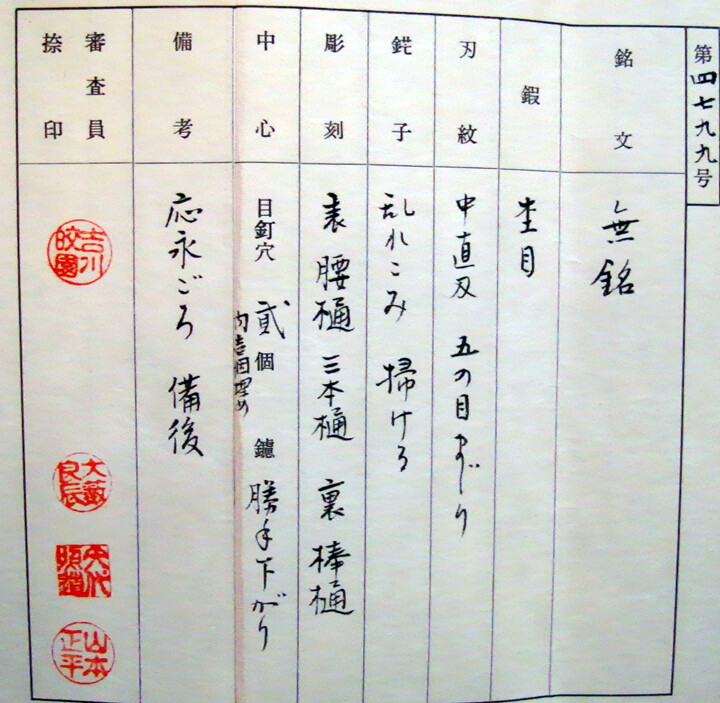 第四七九九号
銘文
無銘
鍜
杢目
刃紋
中直刃 五の目まじり
鋩子
乱れこみ 掃ける
彫刻
表 腰樋 三本樋 裏 棒樋
中心
目釘穴 貳個 鑢 勝手下がり
内壱個埋め
備考
応永ごろ 備後
審査員
捺印
吉川皎園
大藪良辰
矢代
山本正平